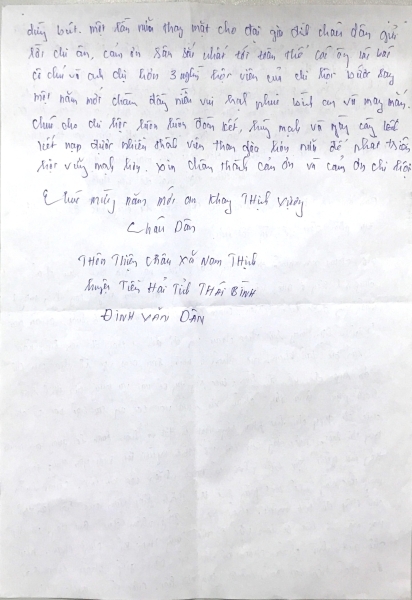 dừng bút. một lần nữa thay mặt cho đại gia đình cháu dân gửi
lời chi ân, cảm ơn sâu sắc nhất tới toàn thể các ông bà bác
cô chú và anh chị hơn 3 nghìn hội viên của chi hội bước sang
một năm mới chàn đầy niềm vui hạnh phúc bình an và may mắn,
chúc cho chi hội luôn luôn đoàn kết, hùng mạnh và ngày càng
kết nạp được nhiều thành viên tham gia hơn nữa để phát triển
hội vững mạnh hơn. xin chân thành cảm ơn và cảm ơn chi hội
Chúc mừng năm mới an khang Thịnh Vượng
Cháu Dân
Thôn Thiện Châu Xã Nam Thịnh
huyện Tiền Hải Tỉnh THÁI BÌNH
ĐINH VĂN DÂN